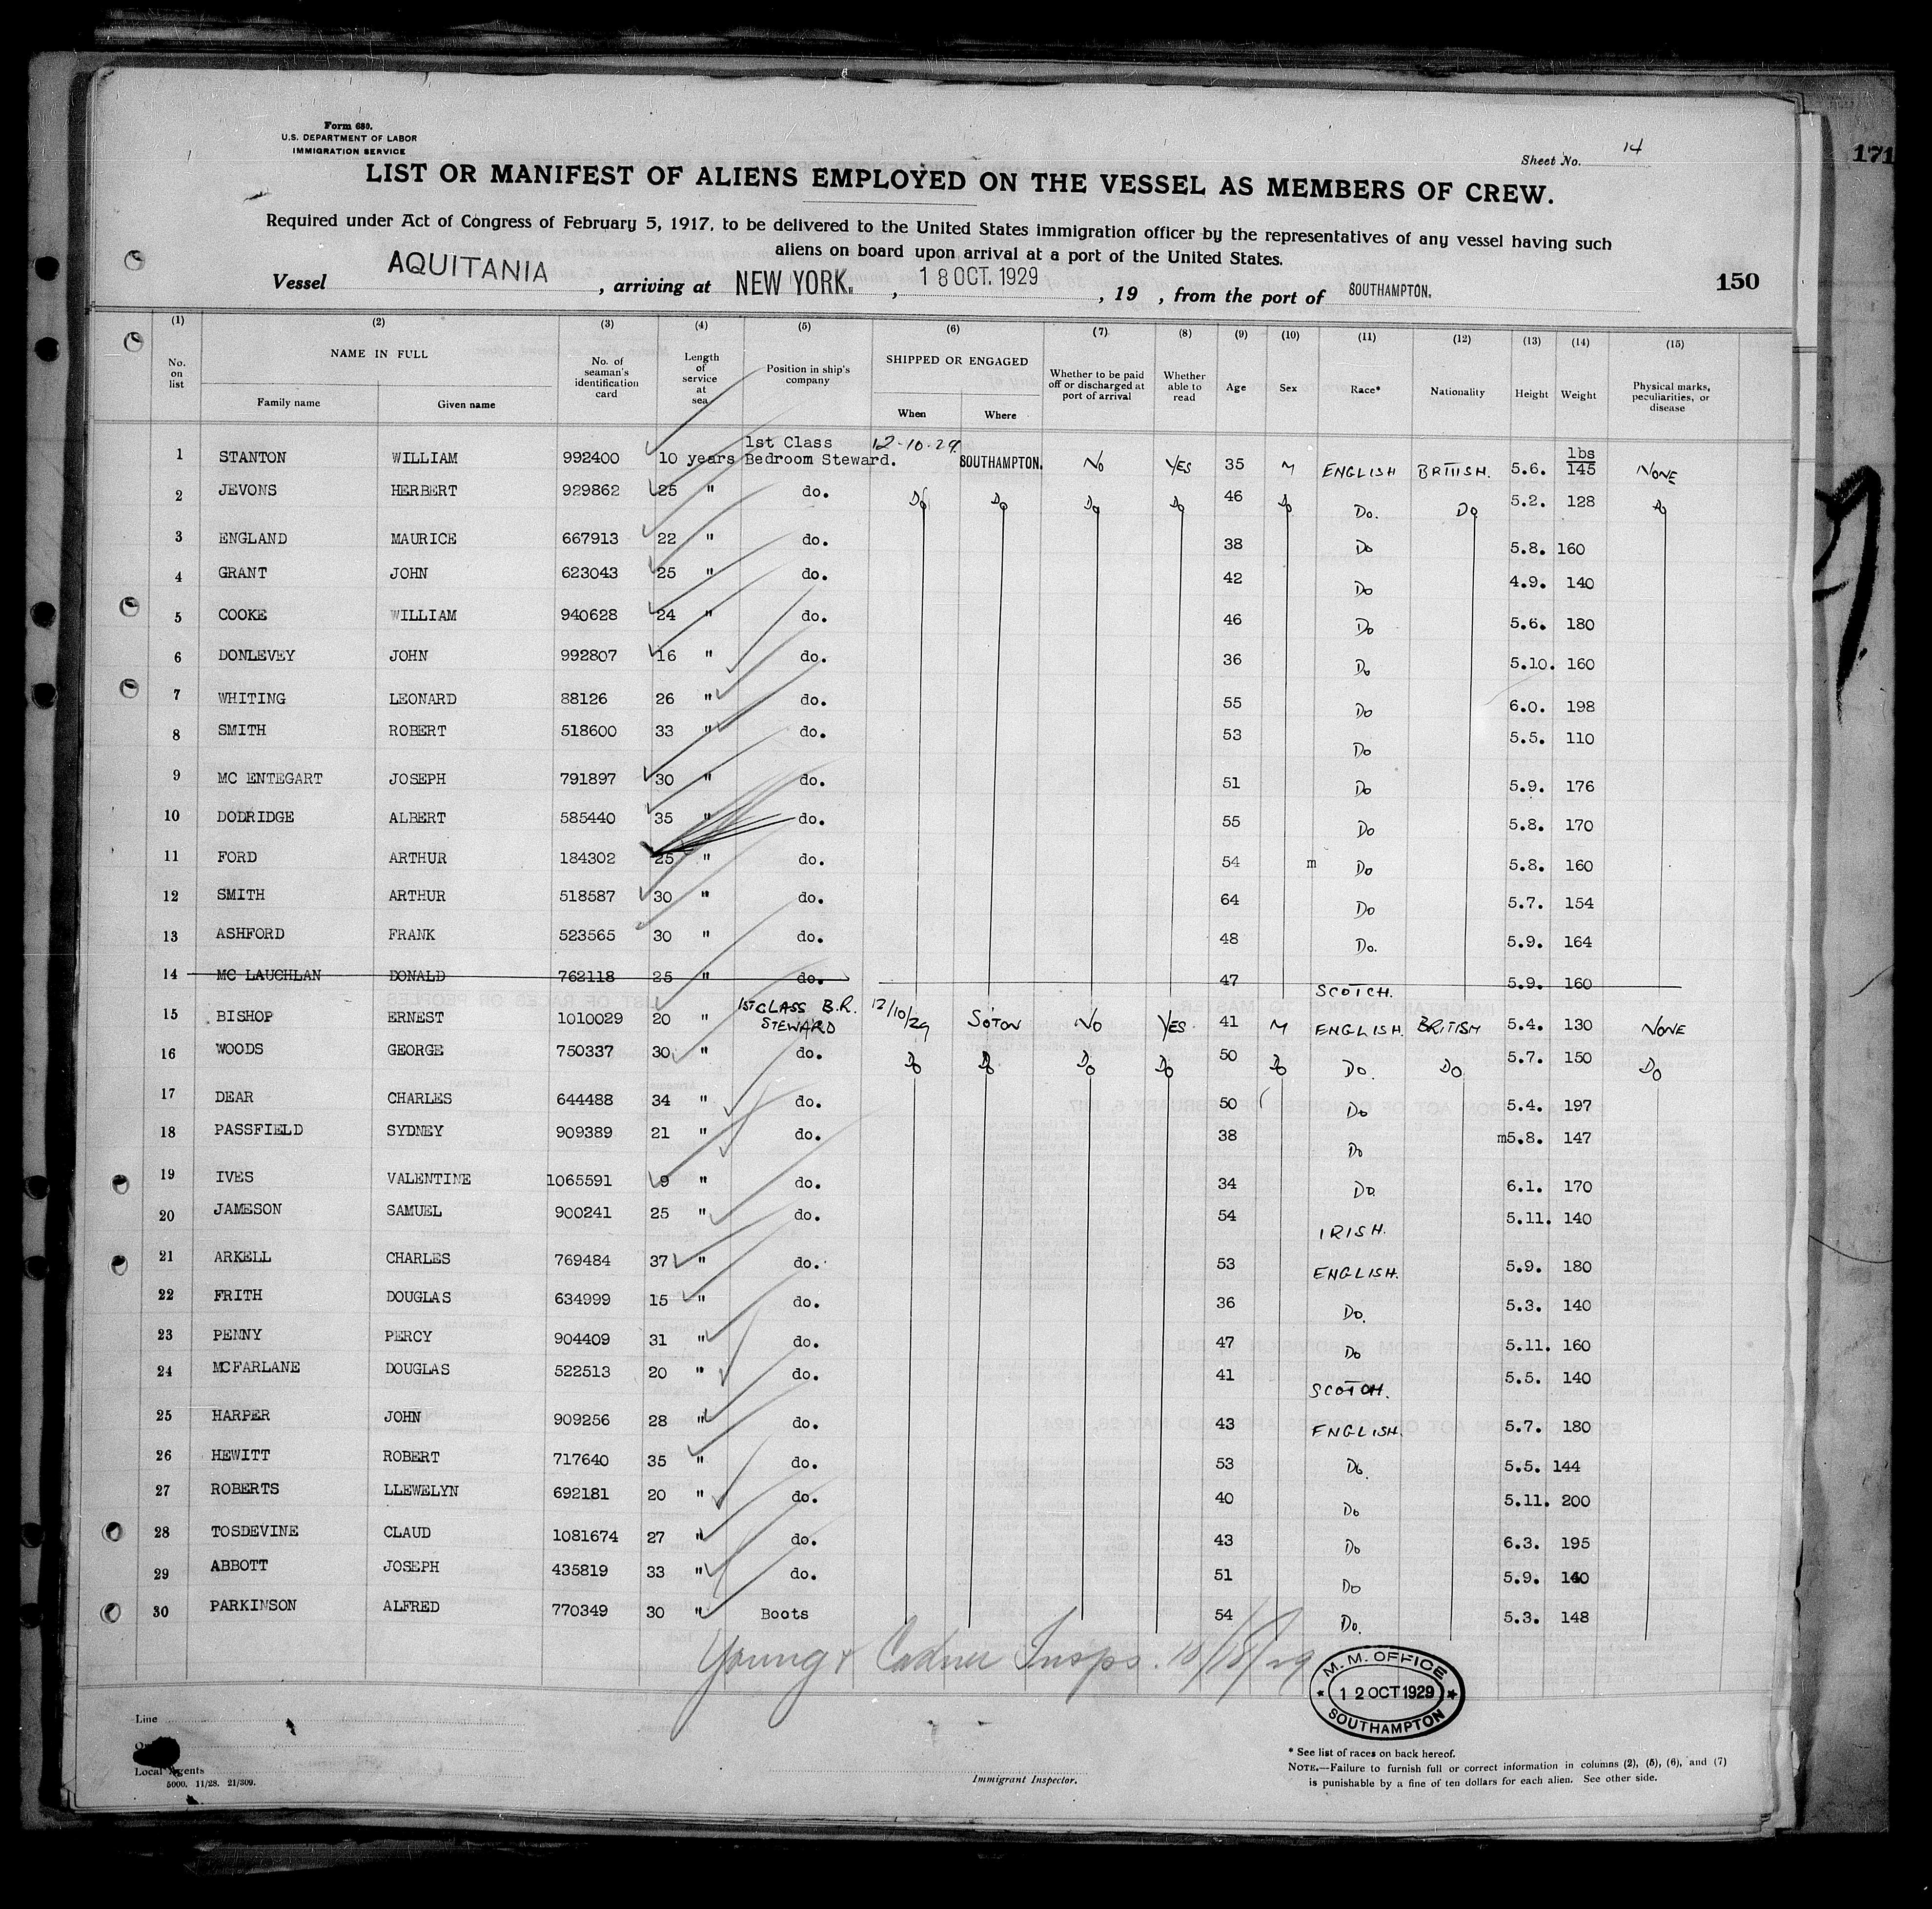 Form 680.
U.S. DEPARTMENT OF LABOR
IMMIGRATION SERVICE
Sheet No. 14
171
LIST OR MANIFEST OF ALIENS EMPLOYED ON THE VESSEL AS MEMBERS OF CREW.
Required under Act of Congress of February 5, 1917, to be delivered to the United States immigration officer by the representatives of any vessel having such
aliens on board upon arrival at a port of the United States.
Vessel AQUITANIA, arriving at NEW YORK., 18 OCT. 1929, 19 , from the port of SOUTHAMPTON.
150
(1) (2) (3) (4) (5) (6) (7) (8) (9) (10) (11) (12) (13) (14) (15)
No. on list NAME IN FULL Family name Given name No. of seaman's identification card Length of service at sea Position in ship's company SHIPPED OR ENGAGED When Where Whether to be paid off or discharged at port of arrival Whether able to read Age Sex Race* Nationality Height Weight Physical marks, peculiarities, or disease
1 STANTON WILLIAM 992400 10 years 1st Class Bedroom Steward. 12-10-29. SOUTHAMPTON. No YES 35 M ENGLISH BRITISH. 5.6. lbs 145 NONE
2 JEVONS HERBERT 929862 25 " do. Do Do Do Do 46 Do Do. Do 5.2. 128 Do
3 ENGLAND MAURICE 667913 22 " do. 38 Do 5.8. 160
4 GRANT JOHN 623043 25 " do. 42 Do 4.9. 140
5 COOKE WILLIAM 940628 24 " do. 46 Do 5.6. 180
6 DONLEVEY JOHN 992807 16 " do. 36 Do 5.10. 160
7 WHITING LEONARD 88126 26 " do. 55 Do 6.0. 198
8 SMITH ROBERT 518600 33 " do. 53 Do 5.5. 110
9 MC ENTEGART JOSEPH 791897 30 " do. 51 Do 5.9. 176
10 DODRIDGE ALBERT 585440 35 " do. 55 Do 5.8. 170
11 FORD ARTHUR 184302 25 " do. 54 m Do 5.8. 160
12 SMITH ARTHUR 518587 30 " do. 64 Do 5.7. 154
13 ASHFORD FRANK 523565 30 " do. 48 Do. 5.9. 164
14 MC LAUCHLAN DONALD 762118 25 " do. 47 SCOTCH. 5.9. 160
15 BISHOP ERNEST 1010029 20 " 1ST CLASS B.R. STEWARD 12/10/29 SOTON NO YES 41 M ENGLISH. BRITISH 5.4. 130 NONE
16 WOODS GEORGE 750337 30 " do. Do Do Do Do 50 Do Do. Do 5.7. 150 Do
17 DEAR CHARLES 644488 34 " do. 50 Do 5.4. 197
18 PASSFIELD SYDNEY 909389 21 " do. 38 Do m5.8. 147
19 IVES VALENTINE 1065591 9 " do. 34 Do. 6.1. 170
20 JAMESON SAMUEL 900241 25 " do. 54 IRISH. 5.11. 140
21 ARKELL CHARLES 769484 37 " do. 53 ENGLISH. 5.9. 180
22 FRITH DOUGLAS 634999 15 " do. 36 Do. 5.3. 140
23 PENNY PERCY 904409 31 " do. 47 Do 5.11. 160
24 MCFARLANE DOUGLAS 522513 20 " do. 41 SCOTCH. 5.5. 140
25 HARPER JOHN 909256 28 " do. 43 ENGLISH. 5.7. 180
26 HEWITT ROBERT 717640 35 " do. 53 Do. 5.5. 144
27 ROBERTS LLEWELYN 692181 20 " do. 40 Do 5.11. 200
28 TOSDEVINE CLAUD 1081674 27 " do. 43 Do 6.3. 195
29 ABBOTT JOSEPH 435819 33 " do. 51 Do 5.9. 140
30 PARKINSON ALFRED 770349 30 " Boots 54 Do. 5.3. 148
Young & Insps. 10/18/29
M. M. OFFICE
12 OCT 1929
SOUTHAMPTON
Line
Local Agents
5000. 11/28. 21/309.
Immigrant Inspector.
* See list of races on back hereof.
NOTE.—Failure to furnish full or correct information in columns (2), (5), (6), and (7)
is punishable by a fine of ten dollars for each alien. See other side.